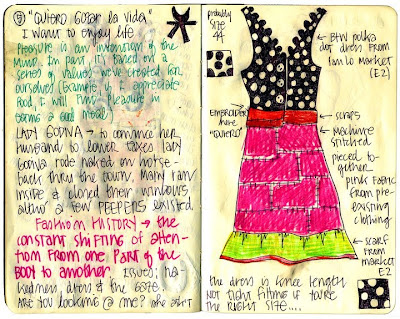 "QUIERO GOZAR la VIDA"
I want to enjoy life
Pleasure is an invention of the
mind. I'm part, it's based on a
series of values we've created for
ourselves (Example, if I appreciate
food, I will find pleasure in
eating a good meal)
LADY GODIVA → to convince her
husband to lower taxes lady
Godiva rode naked on horse-
back thru the town. Many ran
inside & closed their windows
altho a few PEEPERS existed.
FASHION HISTORY → the
constant shifting of atten-
tion from one part of the
BODY to another. Issues: na-
kedness, dress & the gaze.
ARE YOU LOOKING @ me?
probably
size
44
B+W polka
dot dress from
market
(E2)
EMBROIDER
here
"QUIERO"
SCRAPS
MACHINE
stitched
pieced to-
gether
pink fabric
from pre-
existing
clothing
SCARF
from
market
E2
the dress is knee length
not tight fitting if you're
the RIGHT SIZE....